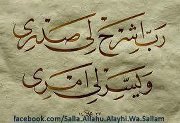 رَبِّ اشْرَحْ لِي صَدْرِي
وَيَسِّرْ لِي أَمْرِي
facebook.com/Salla.Allahu.Alayhi.Wa.Sallam